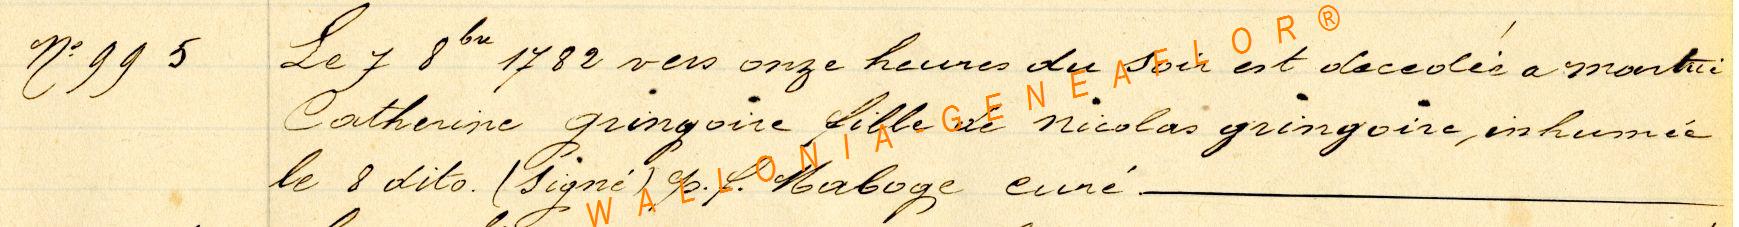 N° 995 Le 7 8bre 1782 vers onze heures du soir est decedée a
Catherine gringoire fille de Nicolas gringoire, inhumée
le 8 dito. (signé) p. f. Maboge curé.
WALLONIA-GENEAFLOR®